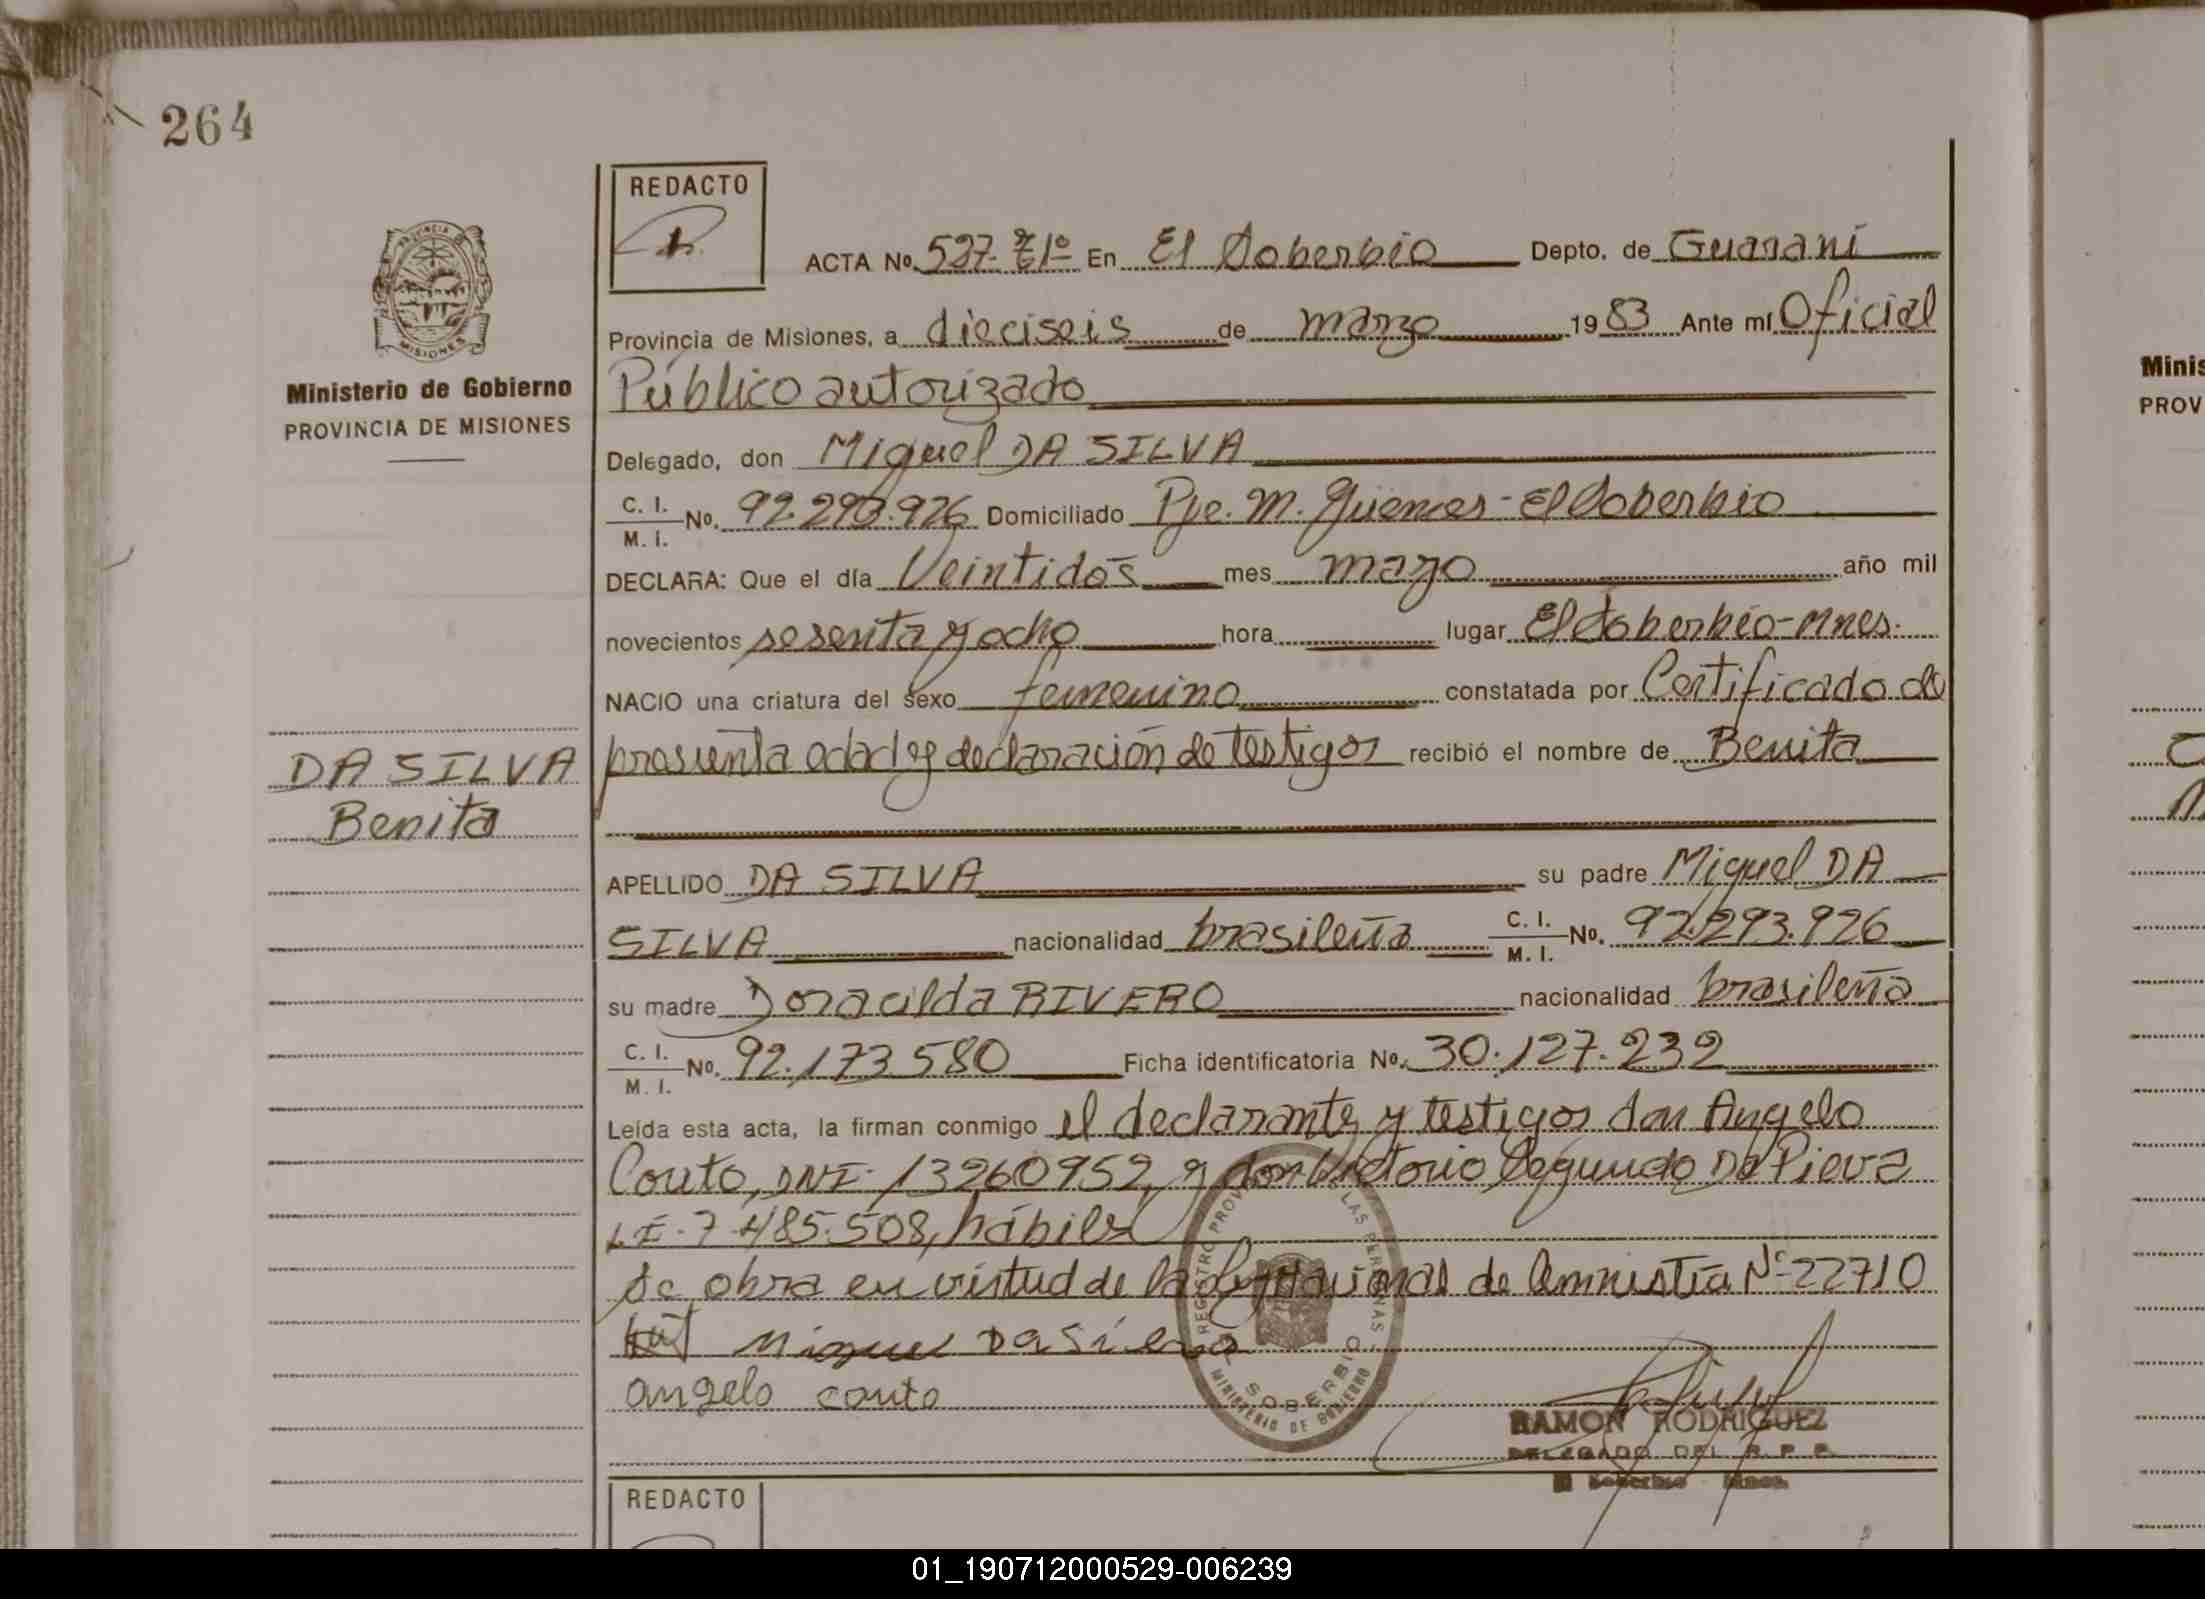 264
REDACTO
ACTA No. 527. Tº 1º En El Soberbio Depto. de Guaraní
Provincia de Misiones, a dieciseis de marzo 1983 Ante mí Oficial
Público autorizado
Ministerio de Gobierno
PROVINCIA DE MISIONES
Delegado, don Miguel DA SILVA
C. I.
M. I. No. 92.293.926 Domiciliado Pje. M. Güemes - El Soberbio
DECLARA: Que el día Veintidós mes mayo año mil
novecientos sesenta y ocho hora lugar El Soberbio - Mnes.
NACIO una criatura del sexo femenino constatada por Certificado de
presunta edad y declaración de testigos recibió el nombre de Benita
DA SILVA
Benita
APELLIDO DA SILVA su padre Miguel DA
SILVA nacionalidad brasileña C. I.
M. I. No. 92.293.926
su madre Doracilda RIVERO nacionalidad brasileña
C. I.
M. I. No. 92.173.580 Ficha identificatoria No. 30.127.232
Leída esta acta, la firman conmigo el declarante y testigos don Angelo
Couto, DNI. 13260952, y don Victorio Segundo Da Pieva
L.E. 7.485.508, hábiles
Se obra en virtud de la Ley Nacional de Amnistía Nº 22710
Miguel Da Silva
angelo couto
REGISTRO PROV LAS PERSONAS
SOBERBIO
MINISTERIO DE GOBIERNO
RAMON RODRIGUEZ
DELEGADO DEL R. P. P.
El Soberbio - Mnes.
REDACTO
Minis
PROV
01_190712000529-006239